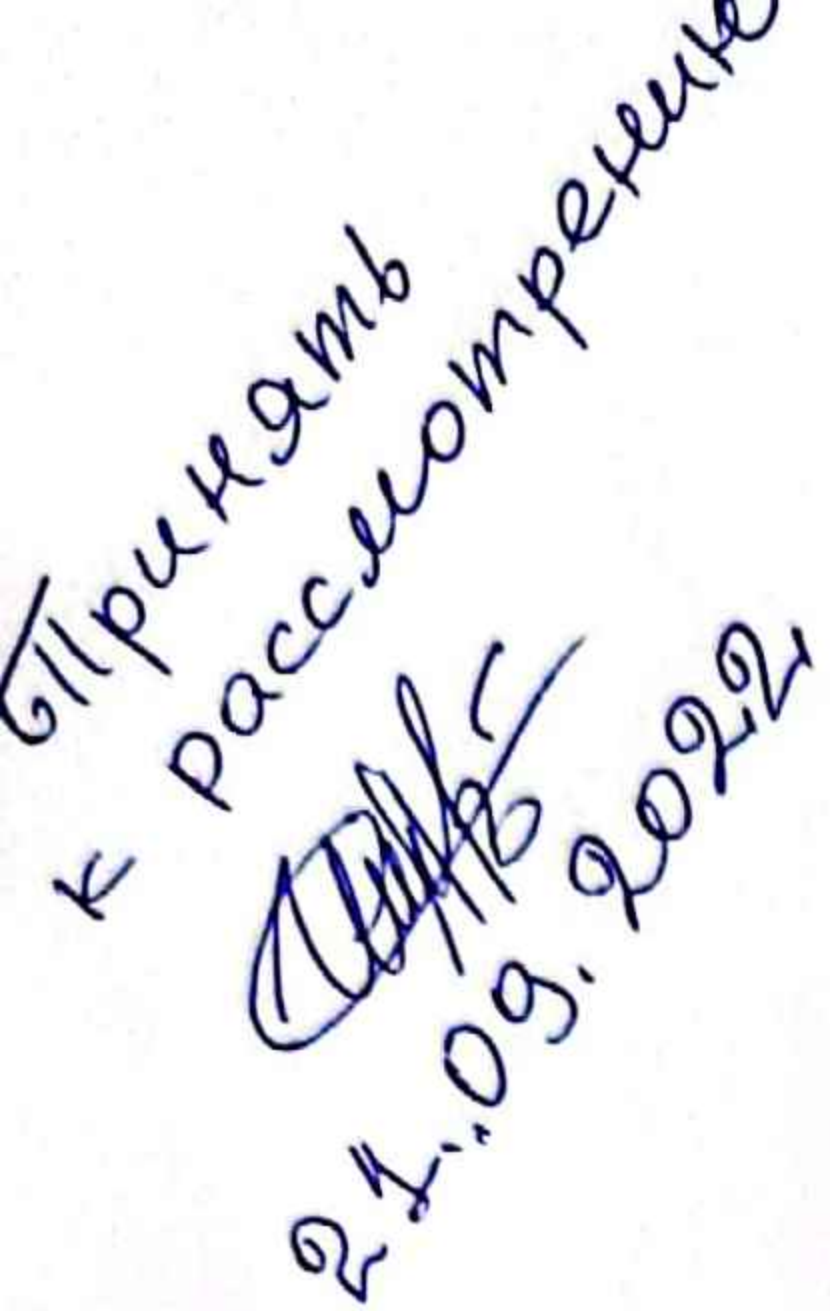 Принять
к рассмотрению
21.09.2022